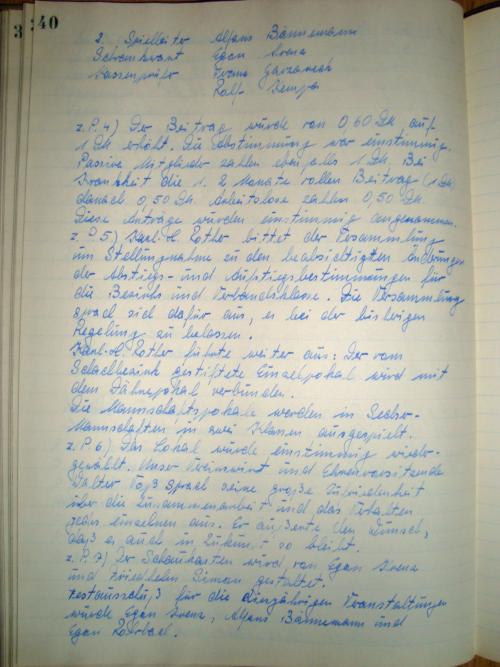 3 240
2. Spielleiter Alfons Bännemann
Schrankwart Egon Krenz
Kassenprüfer Franz
Rolf Kempa
z. P. 4) Der Beitrag wurde von 0,60 DM auf
1 DM erhöht. Die Abstimmung war einstimmig.
Passive Mitglieder zahlen ebenfalls 1 DM. Bei
Krankheit die 1. 2 Monate vollen Beitrag (1 DM)
danach 0,50 DM. Arbeitslose zahlen 0,50 DM.
Diese Anträge wurden einstimmig angenommen.
z. P. 5) Karl-H. Rother bittet der Versammlung
um Stellungnahme zu den beabsichtigten Änderungen
der Abstiegs- und Aufstiegsbestimmungen für
die Bezirks und Verbandsklasse. Die Versammlung
sprach sich dafür aus, es bei der bisherigen
Regelung zu belassen.
Karl-H. Rother führte weiter aus: Der vom
Schachbezirk gestiftete Einzelpokal wird mit
dem Dähnepokal verbunden.
Die Mannschaftspokale werden in Sechser-
Mannschaften in zwei Klassen ausgespielt.
z. P. 6) Das Lokal wurde einstimmig wieder-
gewählt. Unser Vereinswirt und Ehrenvorsitzende
Walter Voß sprach seine große Zufriedenheit
über die Zusammenarbeit und das Verhalten
jedes einzelnen aus. Er äußerte den Wunsch,
daß es auch in Zukunft so bleibt.
z. P. 7) Der Schaukasten wird von Egon Krenz
und Friedhelm Simon gestaltet.
Festausschuß für die diesjährigen Veranstaltungen
wurde Egon Krenz, Alfons Bännemann und
Egon Rohrbach.